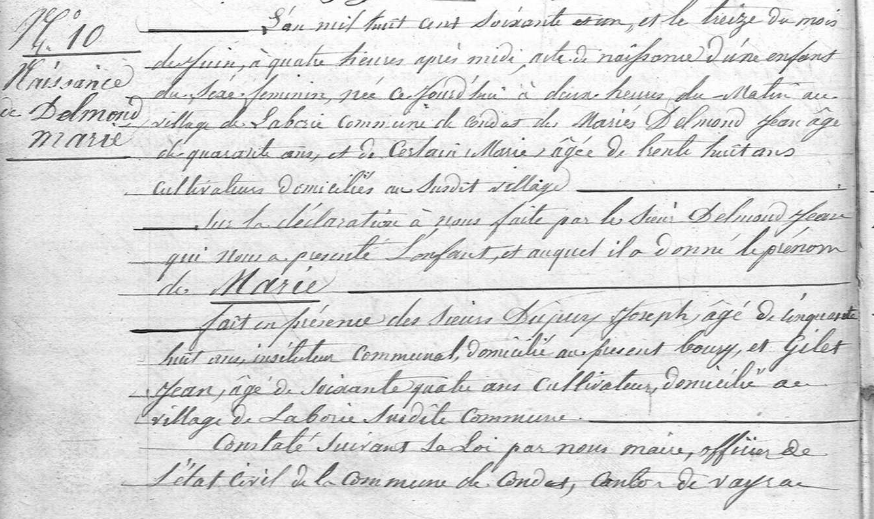 N.º 10
Naissance
de Delmond
marie
L'an mil huit cent soixante et un, et le treize du mois
de Juin, à quatre heures après midi, acte de naissance d'une enfant
du Sexe feminin, née ce Jourd'hui à deux heures du Matin au
village de Laborie Commune de Condat des Mariés Delmond Jean âgé
de quarante ans, et de Certain Marie, âgée de trente huit ans
cultivateurs domiciliés au Susdit village
Sur la déclaration à nous faite par le Sieur Delmond Jean
qui nous a presenté L'enfant, et auquel il a donné le prénom
de Marie
fait en présence des Sieurs Dupuy Joseph, âgé de Cinquante
huit ans, instituteur Communal, domicilié au present bourg, et Gilet
Jean, âgé de Soixante quatre ans Cultivateur, domicilié au
village de Laborie Susdite Commune.
Constaté Suivant La Loi par nous maire, officier de
L'état Civil de la Commune de Condat, Canton de vayrac